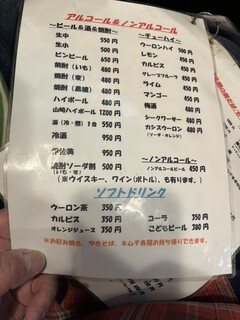 アルコール&ノンアルコール
～ビール&酒&焼酎～
生中 550円
生小 500円
ビンビール 650円
焼酎(いも) 480円
焼酎(麦) 480円
焼酎(黒糖) 480円
ハイボール 480円
山崎ハイボール 1200円
酒(冷・燗)1合 550円
冷酒 950円
伊佐美 950円
焼酎ソーダ割 500円
(いも・麦)
(※ウイスキー、ワイン(ボトル)、も有ります。)
～チューハイ～
ウーロンハイ 500円
レモン 450円
カルピス 450円
グレープフルーツ 450円
ライム 450円
マンゴー 450円
梅酒 450円
シークワーサー 480円
カシスウーロン 480円
(ソーダ・オレンジ)
～ノンアルコール～
ノンアルコールビール 450円
ソフトドリンク
ウーロン茶 350円
カルピス 350円
オレンジジュース 350円
コーラ 350円
こどもビール 380円
※お好み焼き、やきそば、キムチ各種お持ち帰りできます。